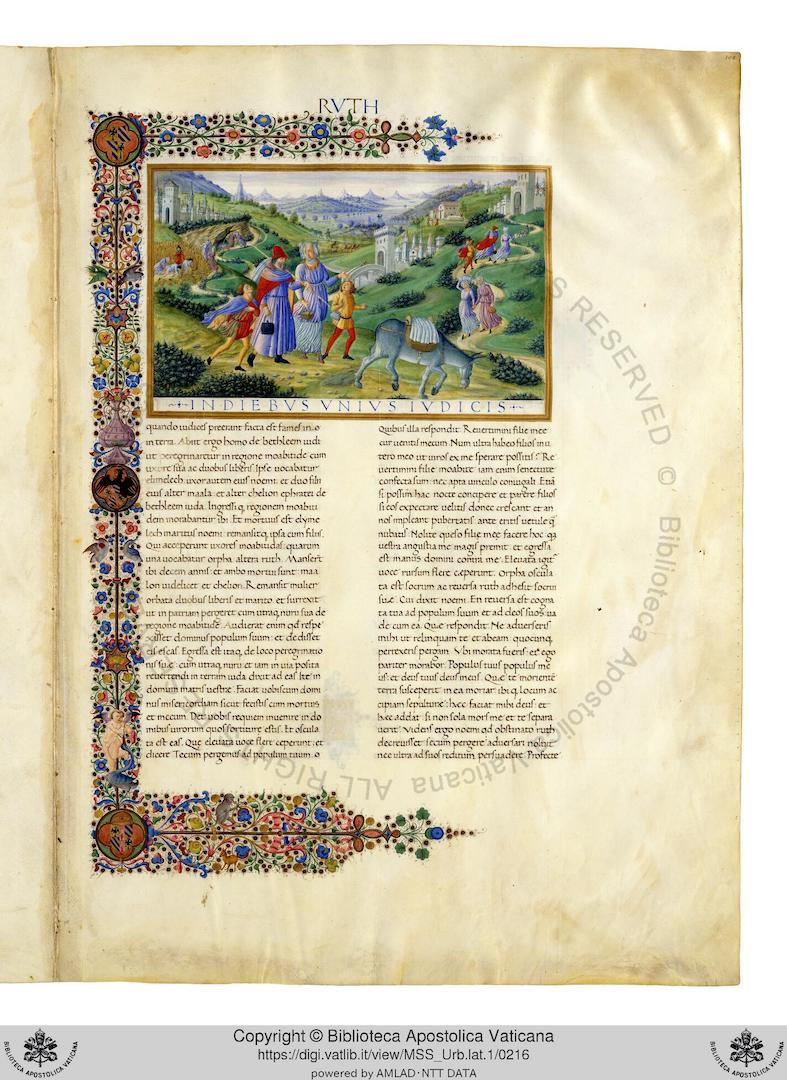 RVTH
INDIEBVS VNIVS IVDICIS
quando iudices preerant facta est fames in
in terra. Abiit ergo homo de bethleem iudi
ut peregrinaretur in regione moabitide cum
uxore sua ac duobus liberis. Ipse uocabatur
elimelech uxor autem eius noemi: et duo filii
eius alter maala: et alter chelion ephratei de
bethleem iuda. Ingressiq, regionem moabiti
dem morabantur ibi. Et mortuus est elyme
lech maritus noemi: remansitq, ipsa cum filiis.
Qui acceperunt uxores moabitidas: quarum
una uocabatur orpha altera ruth. Manserut
ibi decem annis: et ambo mortui sunt: maa
lon uidelicet et chelion. Remansit mulier
orbata duobus liberis et marito. et surrexit
ut in patriam pergeret cum utraq, nuru sua de
regione moabitide. Audierat enim qd respe
xisset dominus populum suum: et dedisset
eis escas. Egressa est itaq, de loco peregrinatio
nis sue cum utraq, nuru: et iam in uia posita
reuertendi in terram iuda dixit ad eas Ite in
domum matris uestre. Faciat uobiscum domi
nus misericordiam sicut fecistis cum mortuis
et mecum. Det uobis requiem inuenire in do
mibus uirorum quos sortiture estis. Et oscula
ta est eas. Que eleuata uoce flere ceperunt: et
dicere Tecum pergemus ad populum tuum.
Quibus illa respondit. Reuertimini filie mee
cur uenitis mecum. Num ultra habeo filios in u
tero meo ut uiros ex me sperare possitis? Re
uertimini filie moabite iam enim senectute
confecta sum: nec apta uinculo coniugali. Etiā
si possim hac nocte concipere et parere filios
si eos expectare uelitis donec crescant et an
nos impleant pubertatis ante eritis uetule q̄
nubatis. Nolite queso filie mee facere hoc qa
uestra angustia me magis premit: et egressa
est manus domini contra me. Eleuata igit
uoce rursum flere ceperunt. Orpha oscula
ta est socrum ac reuersa ruth adhesit socrui
sue. Cui dixit noemi. En reuersa est cogna
ta tua ad populum suum et ad deos suos ua
de cum ea. Que respondit. Ne aduerseris
mihi ut relinquam te et abeam: quocunq,
perrexeris pergam. Vbi morata fueris: et ego
pariter morabor. Populus tuus populus me
us: et deus tuus deus meus. Que te moriente
terra susceperit in ea moriar ibiq, locum ac
cipiam sepulture: hec faciat mihi deus: et
hec addat si non sola mors me et te separa
uerit. Videns ergo noemi qd obstinato ruth
decreuisset secum pergere aduersari noluit
nec ultra ad suos reditum persuadere. Profecte
RESERVED © Biblioteca Apostolica Vaticana ALL RIGHTS
Copyright © Biblioteca Apostolica Vaticana
https://digi.vatlib.it/view/MSS_Urb.lat.1/0216
powered by AMLAD·NTT DATA
BIBLIOTECA APOSTOLICA VATICANA
BIBLIOTECA APOSTOLICA VATICANA